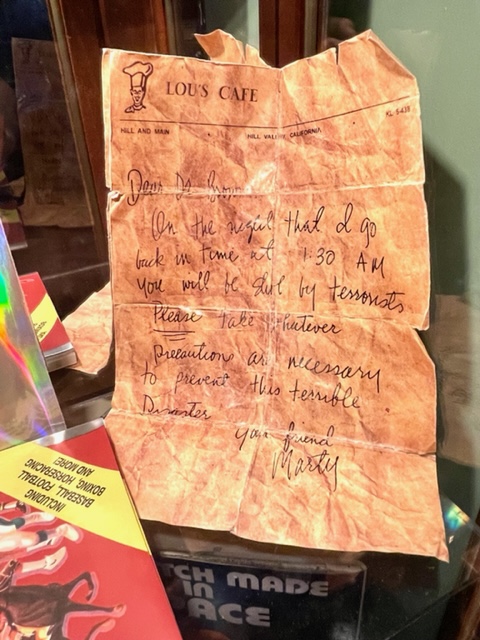 LOU'S CAFE
HILL AND MAIN
HILL VALLEY, CALIFORNIA
KL 5-43
Dear Dr. Brown
On the night that I go
back in time at 1:30 AM
you will be shot by terrorists
Please take whatever
precautions are necessary
to prevent this terrible
Disaster
your friend
Marty
INCLUDING
BASEBALL, FOOTBALL
BOXING, HORSERACING
AND MORE!
TCH MADE
IN
ACE